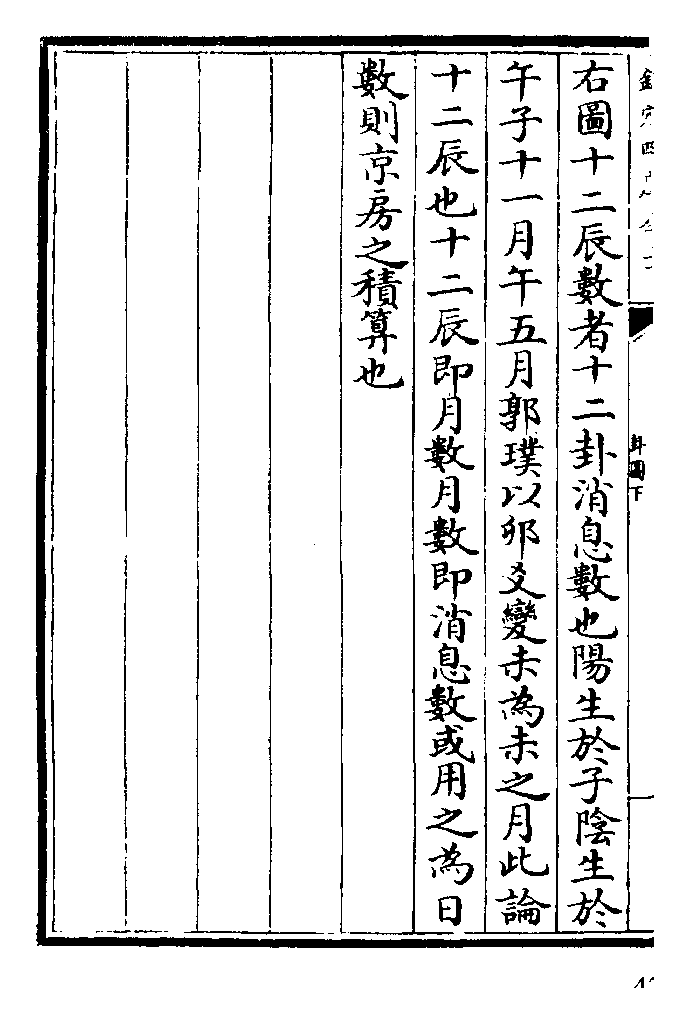 右圖十二辰數者十二卦消息數也陽生於子陰生於
午子十一月午五月郭璞以卯爻變未為未之月此論
十二辰也十二辰即月數月數即消息數或用之為日
數則京房之積算也
卦圖下